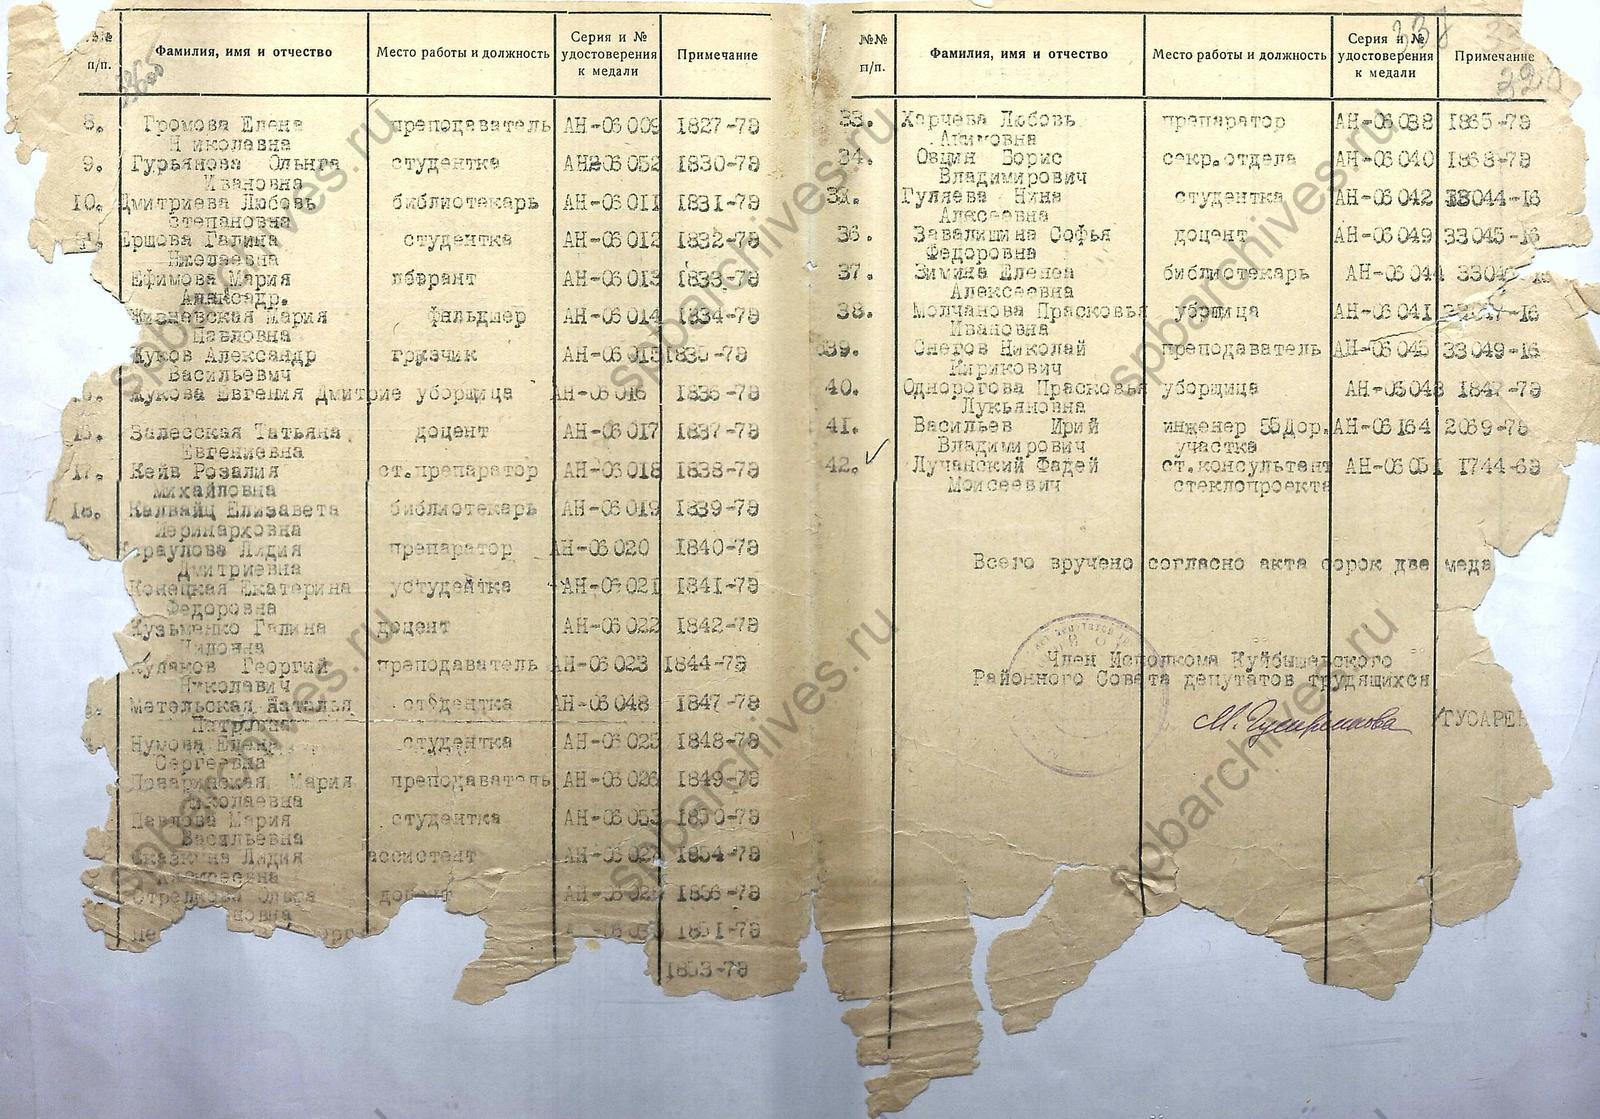 №№ п/п.
Фамилия, имя и отчество
Место работы и должность
Серия и № удостоверения к медали
Примечание
8. Громова Елена преподаватель АН-06 009 1827-79
Николаевна
9. Гурьянова Ольнга студентка 06 052 1830-79
Ивановна
10. Дмитриева Любовь библиотекарь АН-06 011 1831-79
Степановна
Ершова Галина студентка АН-06 012 1832-79
Ефимова Мария АН-06 013 1833-79
Александр.
Жизневская Мария фальдшер АН-06 014 1834-79
Павловна
Жуков Александр грузчик АН-06 015 1835-79
Васильевич
Жукова Евгения Дмитрие уборщица АН-06 016 1836-79
Залесская Татьяна доцент АН-06 017 1837-79
Евгениевна
17. Кейв Розалия ст.препаратор АН-06 018 1838-79
Михайловна
18. Калвайц Елизавета библиотекарь АН-06 019 1839-79
Иеринарховна
араулова Лидия препаратор АН-06 020 1840-79
Дмитриевна
Конецкая Екатерина устудентка АН-06 021 1841-79
Федоровна
Кузьменко Галина доцент АН-06 022 1842-79
Кулаков Георгий преподаватель АН-06 023 1844-79
Николавич
Метельская Наталья студентка АН-06 048 1847-79
Петровна
Нумова Елена студентка АН-06 025 1848-79
Сергеевна
Мария преподаватель АН-06 026 1849-79
Павлова Мария студентка АН-06 053 1850-79
Васильевна
Лидия ассистент 1854-79
доцент 1856-79
1851-79
1853-79
№№ п/п.
Фамилия, имя и отчество
Место работы и должность
Серия и № удостоверения к медали
Примечание
337
320
33. Харчева Любовь препаратор АН-06 038 1865-79
Акимовна
34. Овцин Борис секр.отдела АН-06 040 1868-79
Владимирович
Гуляева Нина студентка АН-06 042 33044-16
Алексеевна
36. Завалишина Софья доцент АН-06 049 33 045-16
Федоровна
37. Зимина Еленеа библиотекарь АН-06 044
Алексеевна
38. Молчанова Прасковья уборщица АН-06 041
Ивановна
39. Снегов Николай преподаватель АН-06 045 33 049-16
Кирикович
40. Однорогова Прасковья уборщица АН-06 048 1847-79
Лукьяновна
41. Васильев Юрий инженер 55 Дор. АН-06 164 2069-78
Владимирович участка
42. Лучанский Фадей ст.консультент АН-06 051 1744-69
Моисеевич стеклопроекта
Всего вручено согласно акта сорок две меда
Член Исполкома Куйбышевского
Районного Совета депутатов трудящихся
/ГУСАРЕН
spbarchives.ru
spbarchives.ru
spbarchives.ru
spbarchives.ru
spbarchives.ru
spbarchives.ru